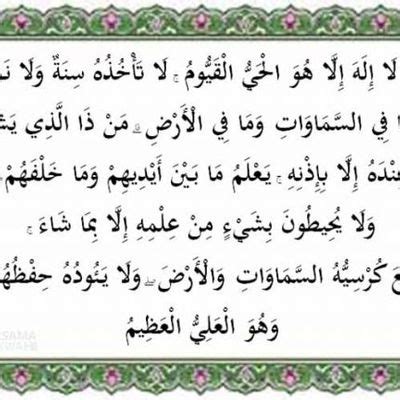 لَا إِلَهَ إِلَّا هُوَ الْحَيُّ الْقَيُّومُ ۚ لَا تَأْخُذُهُ سِنَةٌ وَلَا
فِي السَّمَاوَاتِ وَمَا فِي الْأَرْضِ ۗ مَنْ ذَا الَّذِي
إِلَّا بِإِذْنِهِ ۚ يَعْلَمُ مَا بَيْنَ أَيْدِيهِمْ وَمَا خَلْفَهُمْ
وَلَا يُحِيطُونَ بِشَيْءٍ مِنْ عِلْمِهِ إِلَّا بِمَا شَاءَ ۚ
كُرْسِيُّهُ السَّمَاوَاتِ وَالْأَرْضَ ۖ وَلَا يَئُودُهُ
وَهُوَ الْعَلِيُّ الْعَظِيمُ